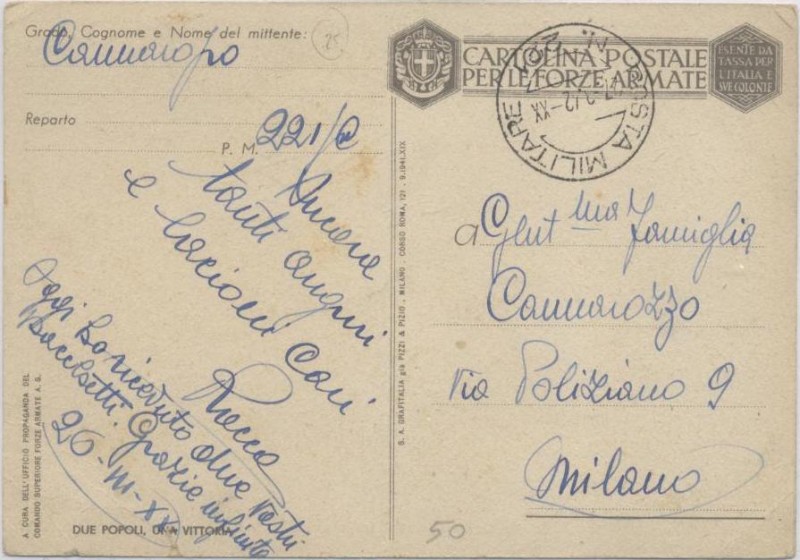 Grado, Cognome e Nome del mittente:
25
Reparto
P. M. 221/C
Ancora
tanti auguri
e bacioni cari
Rocco
Oggi ho ricevuto due vostri
pacchetti. Grazie infinite
26-III-XX
A CURA DELL'UFFICIO PROPAGANDA DEL
COMANDO SUPERIORE FORZE ARMATE A. S.
DUE POPOLI, UNA VITTORIA
S. A. GRAFITALIA già PIZZI & PIZIO - MILANO - CORSO ROMA, 121 - 9-1941-XIX
CARTOLINA POSTALE
PER LE FORZE ARMATE
ESENTE DA
TASSA PER
L'ITALIA E
SUE COLONIE
POSTA MILITARE
A Gent.ma Famiglia
Cannarozzo
Via Poliziano 9
Milano
50